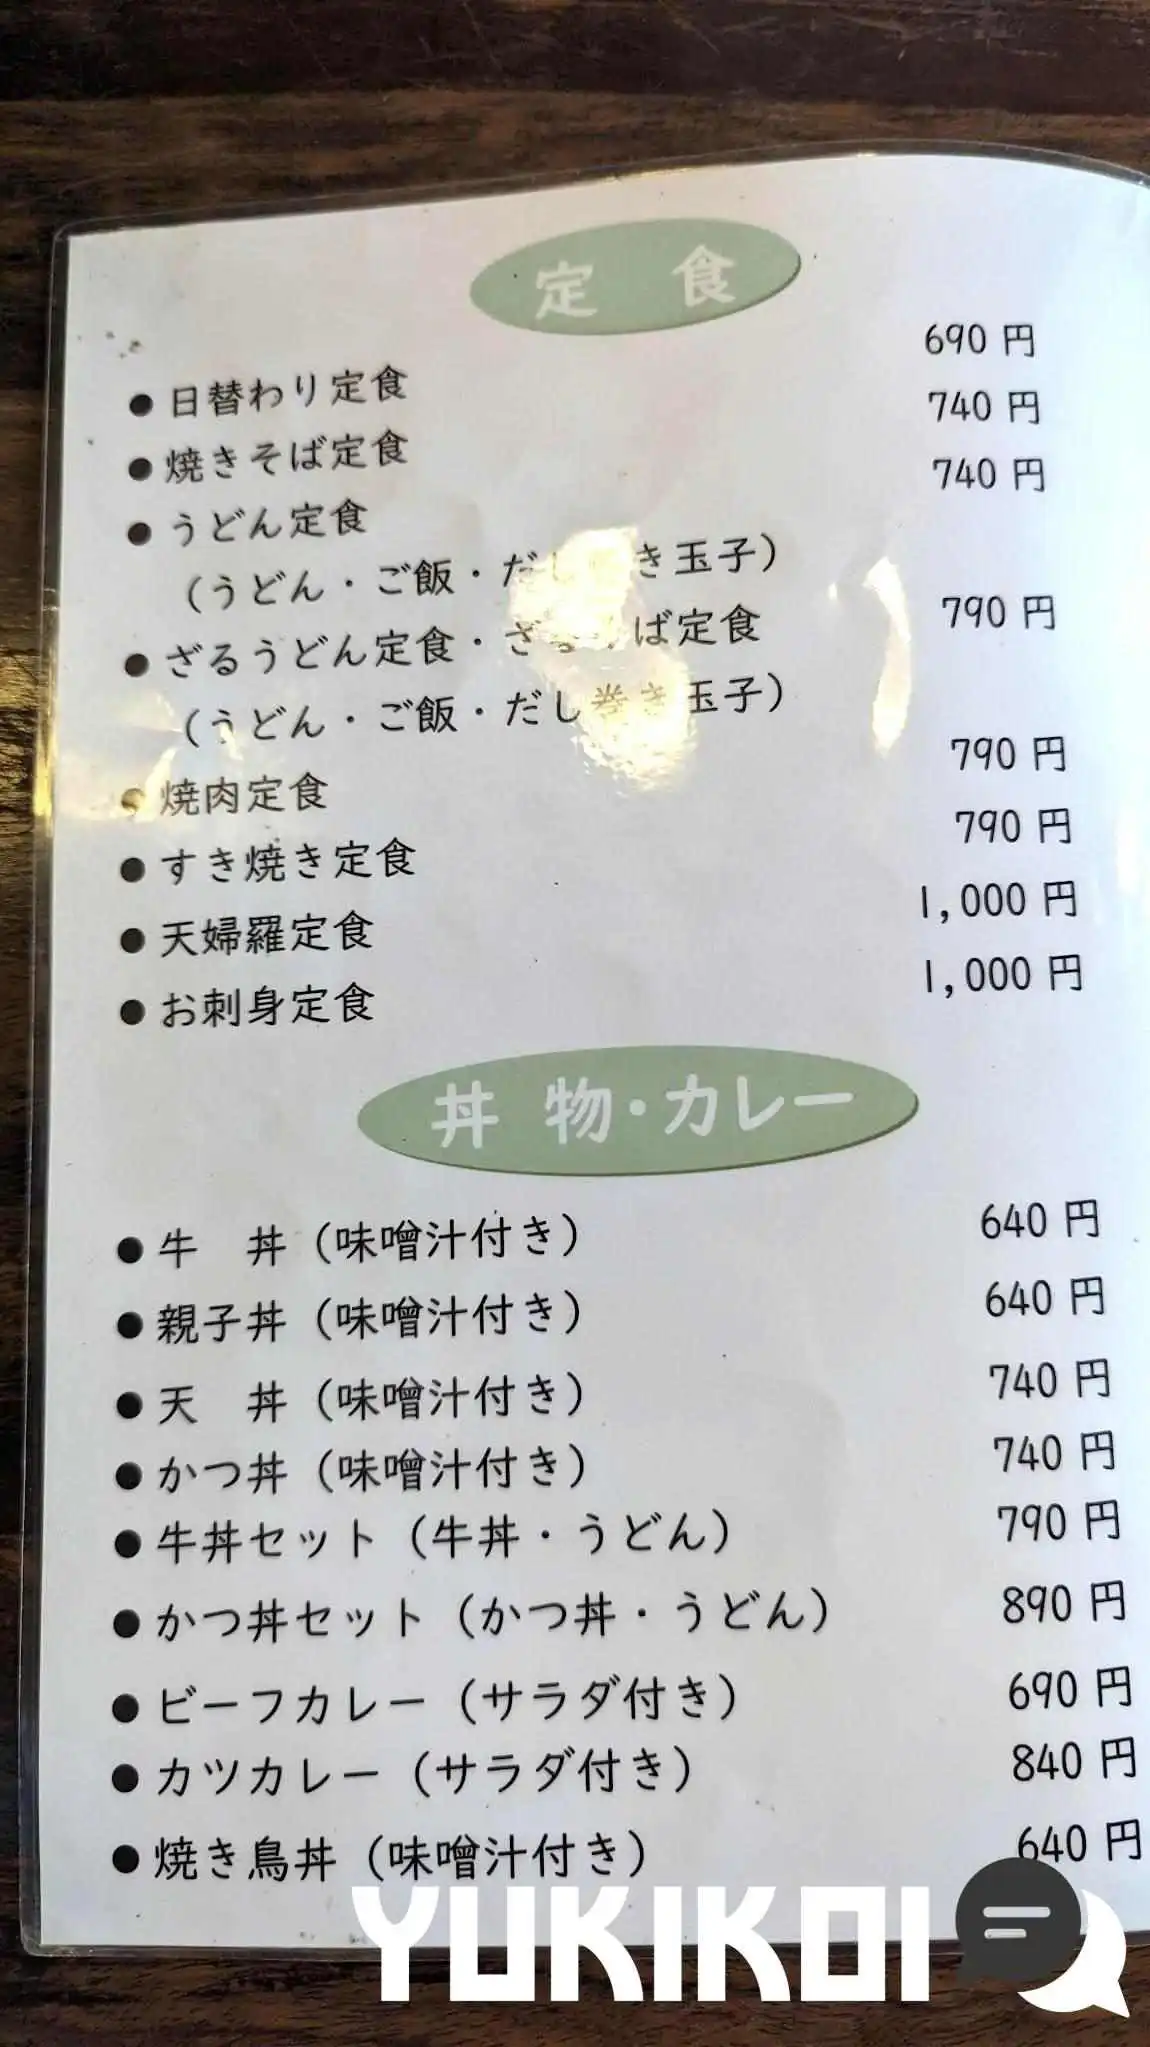 定 食
●日替わり定食 690 円
●焼きそば定食 740 円
●うどん定食 740 円
(うどん・ご飯・だし き玉子)
●ざるうどん定食・ざるそば定食 790 円
(うどん・ご飯・だし巻き玉子)
●焼肉定食 790 円
●すき焼き定食 790 円
●天婦羅定食 1,000 円
●お刺身定食 1,000 円
丼 物・カレー
●牛 丼(味噌汁付き) 640 円
●親子丼(味噌汁付き) 640 円
●天 丼(味噌汁付き) 740 円
●かつ丼(味噌汁付き) 740 円
●牛丼セット(牛丼・うどん) 790 円
●かつ丼セット(かつ丼・うどん) 890 円
●ビーフカレー(サラダ付き) 690 円
●カツカレー(サラダ付き) 840 円
●焼き鳥丼(味噌汁付き) 640 円
YUKIKOI